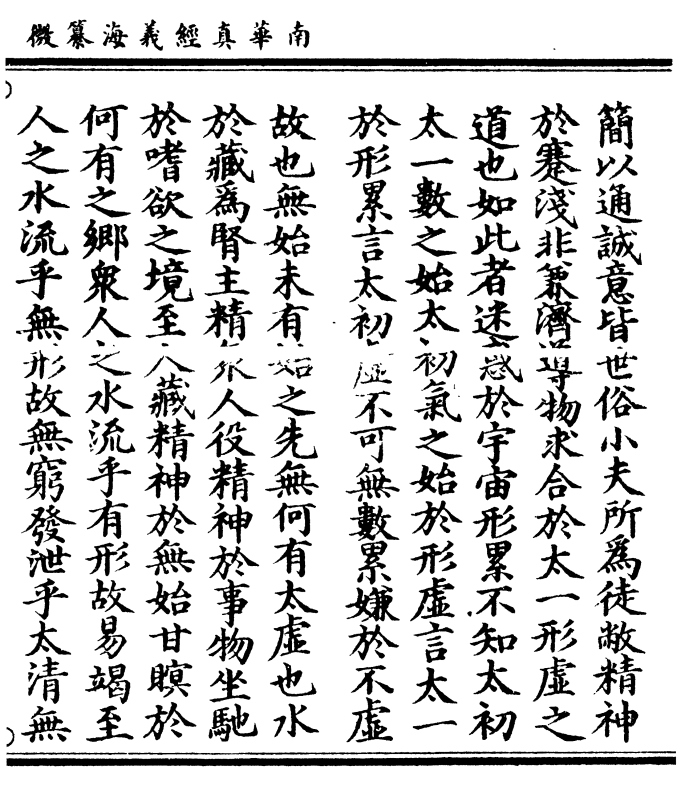 南華真經義海纂微
簡以通誠意皆世俗小夫所爲徒敝精神
於蹇淺非兼濟導物求合於太一形虛之
道也如此者迷惑於宇宙形累不知太初
太一數之始太初氣之始於形虛言太一
於形累言太初虛不可無數累嫌於不虛
故也無始未有始之先無何有太虛也水
於藏爲腎主精衆人役精神於事物坐馳
於嗜欲之境至人藏精神於無始甘瞑於
何有之鄉衆人之水流乎有形故易竭至
人之水流乎無形故無窮發泄乎太清無